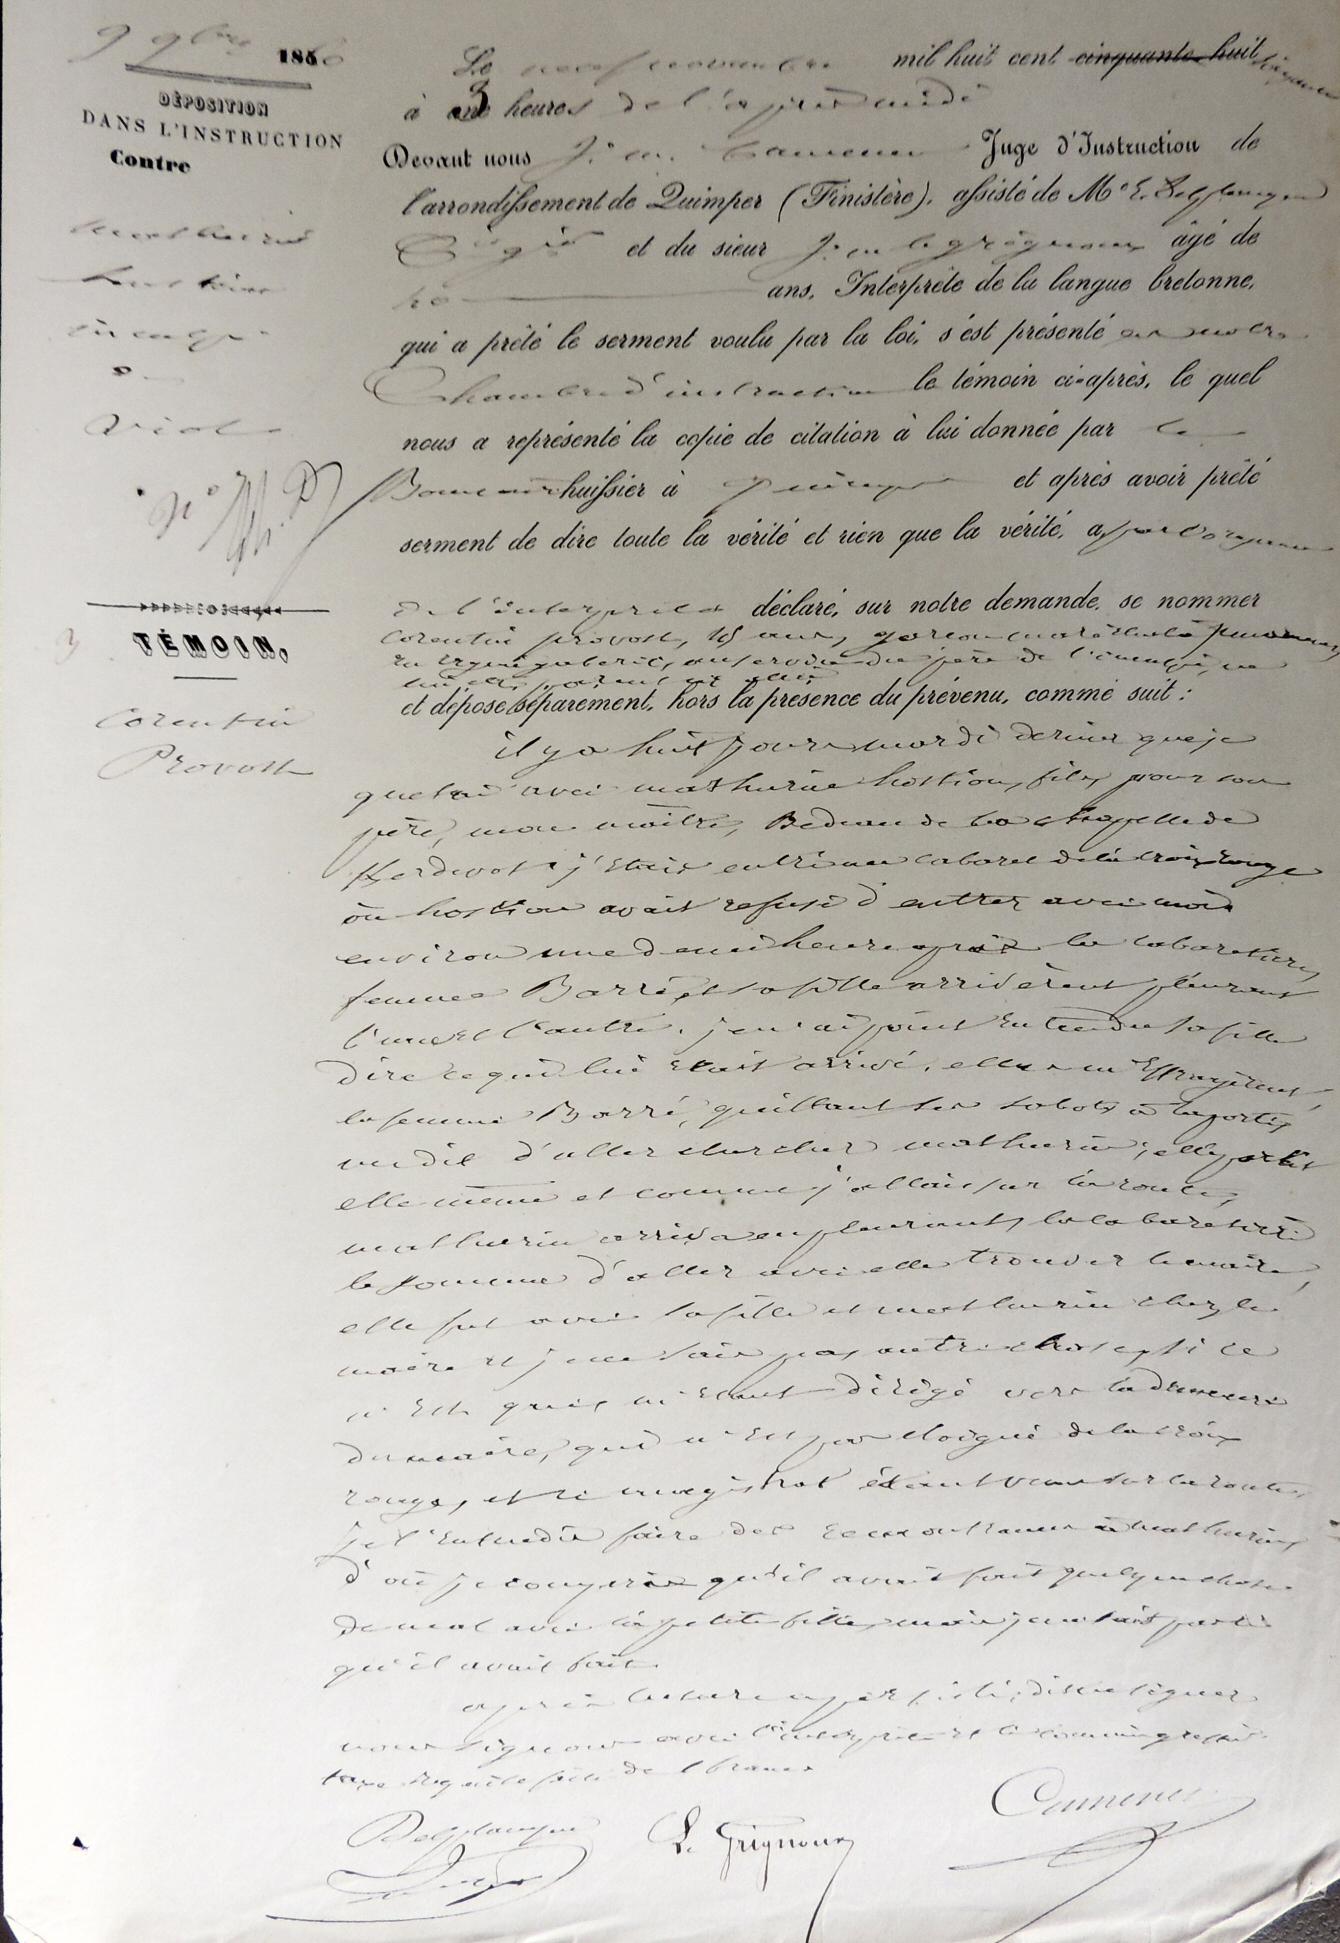 9 9bre 1860
DÉPOSITION
DANS L'INSTRUCTION
Contre
mathurin
hostiou
inculpé
de
viol
TÉMOIN,
3
Corentin
Provost
Le neuf novembre mil huit cent cinquante-huit soixante
à une 3 heures de l'après midi
Devant nous J. m. Camenen Juge d'Instruction de
l'arrondissement de Quimper (Finistère), assisté de Me E. Delplanque
Cis gier et du sieur J. m le grignoux âgé de
ans, Interprète de la langue bretonne,
qui a prêté le serment voulu par la loi, s'est présenté en notre
Chambre d'instruction le témoin ci-après, le quel
nous a représenté la copie de citation à lui donnée par le
huissier à quimper et après avoir prêté
serment de dire toute la vérité et rien que la vérité, a, par l'organe
de l'interprète déclaré, sur notre demande, se nommer
Corentin provost, 18 ans, garçon maréchal à
en ergué gaberic, au service du père de l'inculpé, ne
lui être parent ni allié
et dépose séparement, hors la présence du prévenu, comme suit :
il y a huit jours mardi dernier que je
quetai avec mathurin hostiou, fils, pour son
père, mon maître, Bedeau de la chapelle de
Kerdevot. j'etais entré au cabaret de la croix rouge
où hostiou avait refusé d'entrer avec moi
environ une demi heure après la cabaretière,
femme Barré, et sa fille arrivèrent pleurant
l'une et l'autre. je n'ai point entendu la fille
dire ce qui lui etait arrivé, elles m'effrayèrent,
la femme Barré, quittant ses sabots à la porte,
me dit d'aller chercher mathurin; elle partit
elle même et comme j'allais sur la route,
mathurin arriva en pleurant, la cabaretière
le somma d'aller avec elle trouver le maire,
elle fut avec sa fille et mathurin chez le
maire et je ne sais pas autre chose, si ce
n'est que m'etant dirigé vers la demeure
du maire, qui n'est pas eloigné de la croix
rouge, et ce magistrat étant venu sur la route,
je l'entendis faire des remontrances à mathurin,
d'où je compris qu'il avait fait quelque chose
de mal avec la petite fille, mais je ne sais pas ce
qu'il avait fait.
après lecture a persisté, dit ne signer
nous signons avec l'interprète et le commis greffier
taxe requise fixée de 1 franc
Delplanque
L. Grignoux
Camenen